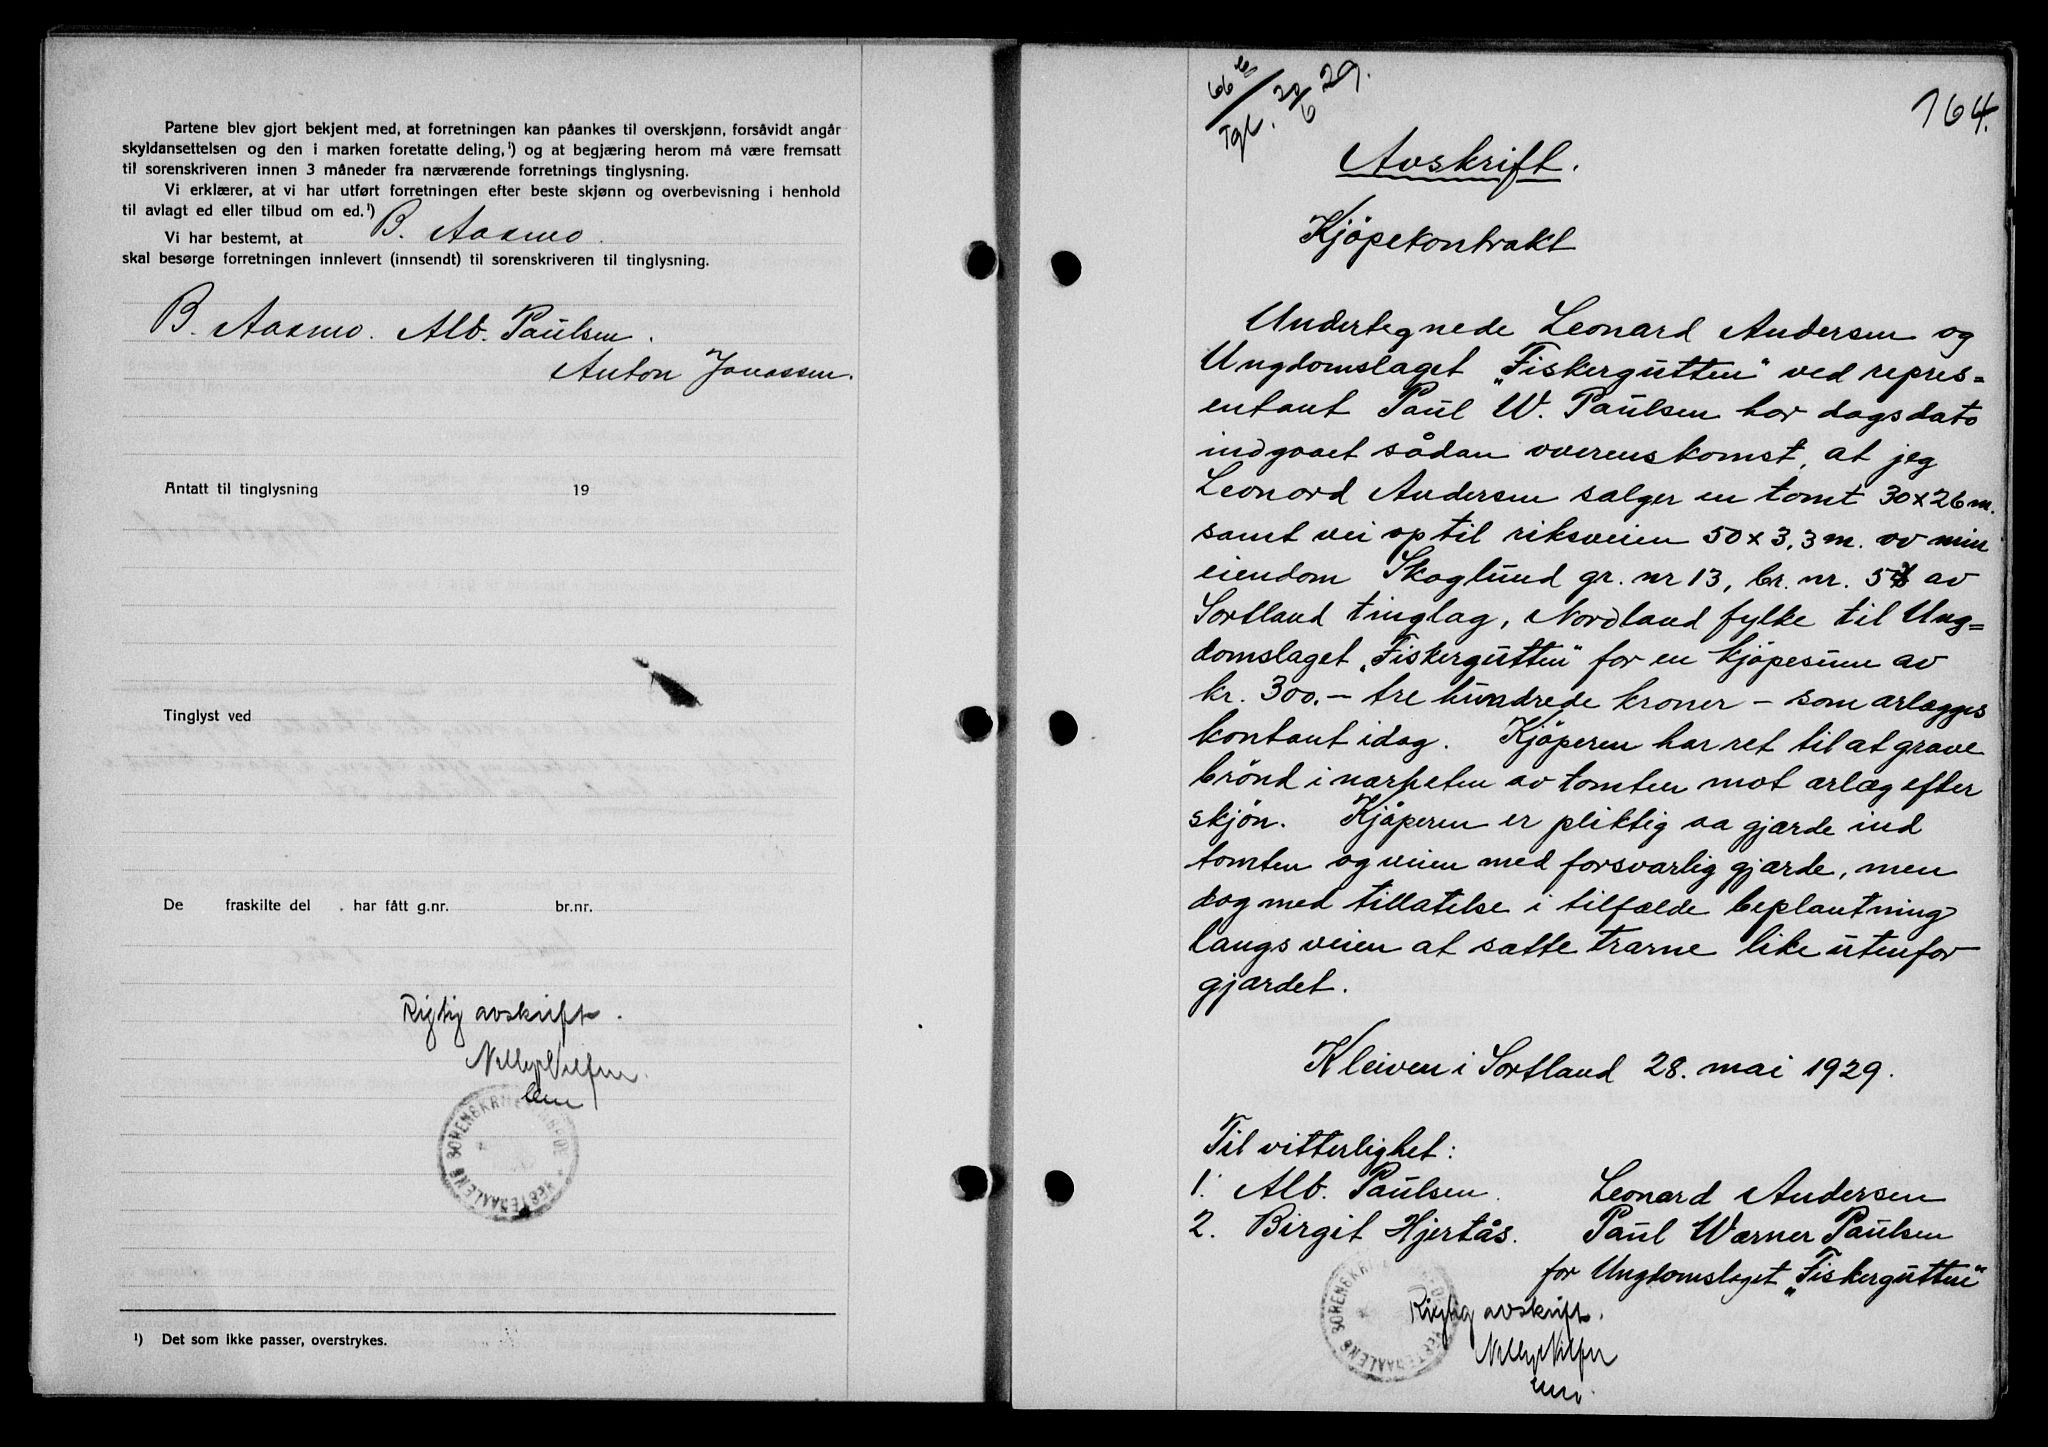 Partene blev gjort bekjent med, at forretningen kan påankes til overskjønn, forsåvidt angår
skyldansettelsen og den i marken foretatte deling,¹) og at begjæring herom må være fremsatt
til sorenskriveren innen 3 måneder fra nærværende forretnings tinglysning.
Vi erklærer, at vi har utført forretningen efter beste skjønn og overbevisning i henhold
til avlagt ed eller tilbud om ed.¹)
Vi har bestemt, at B. Aasmo.
skal besørge forretningen innlevert (innsendt) til sorenskriveren til tinglysning.
B. Aasmo. Alb. Paulsen.
Anton Jonassen.
Antatt til tinglysning 19
Tinglyst ved
De fraskilte del . har fått g.nr. br.nr.
Rigtig avskrift.
SORENSKRIVEREN VESTERAALENS
¹) Det som ikke passer, overstrykes.
Tgl. 22/6 29.
164.
Avskrift.
Kjöpekontrakt
Undertegnede Leonard Andersen og
Ungdomslaget „Fiskergutten" ved repres=
entant Paul W. Paulsen har dags dato
indgaaet sådan overenskomst, at jeg
Leonard Andersen sælger en tomt 30 x 26 m.
samt vei op til riksveien 50 x 3,3 m. av min
eiendom Skoglund gr. nr 13, br. nr. 5 av
Sortland tinglag, Nordland fylke til Ung=
domslaget „Fiskergutten" for en kjöpesum av
kr. 300.- tre hundrede kroner - som ærlægges
kontant idag. Kjöperen har ret til at grave
brönd i nærheten av tomten mot ærlæg efter
skjön. Kjöperen er pliktig aa gjærde ind
tomten og veien med forsvarlig gjærde, men
dog med tillatelse i tilfælde beplantning
langs veien at sætte trærne like utenfor
gjærdet.
Kleiven i Sortland 28. mai 1929.
Til vitterlighet:
1. Alb. Paulsen. Leonard Andersen
2. Birgit Hjertås. Paul Wærner Paulsen
for Ungdomslaget „Fiskergutten"
Rigtig avskrift.
SORENSKRIVEREN VESTERAALENS